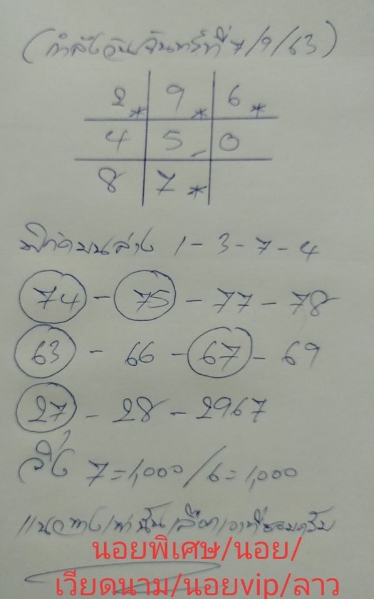 (กำลังวันจันทร์ที่ 7/9/63)
2* 9* 6*
4 5- 0
8 7*
บนล่าง 1-3-7-4
74-75-77-78
63-66-67-69
27-28-2967
วิ่ง 7=1,000/6=1,000
แนวทางเท่านั้น
นอยพิเศษ/นอย/
เวียดนาม/นอยvip/ลาว